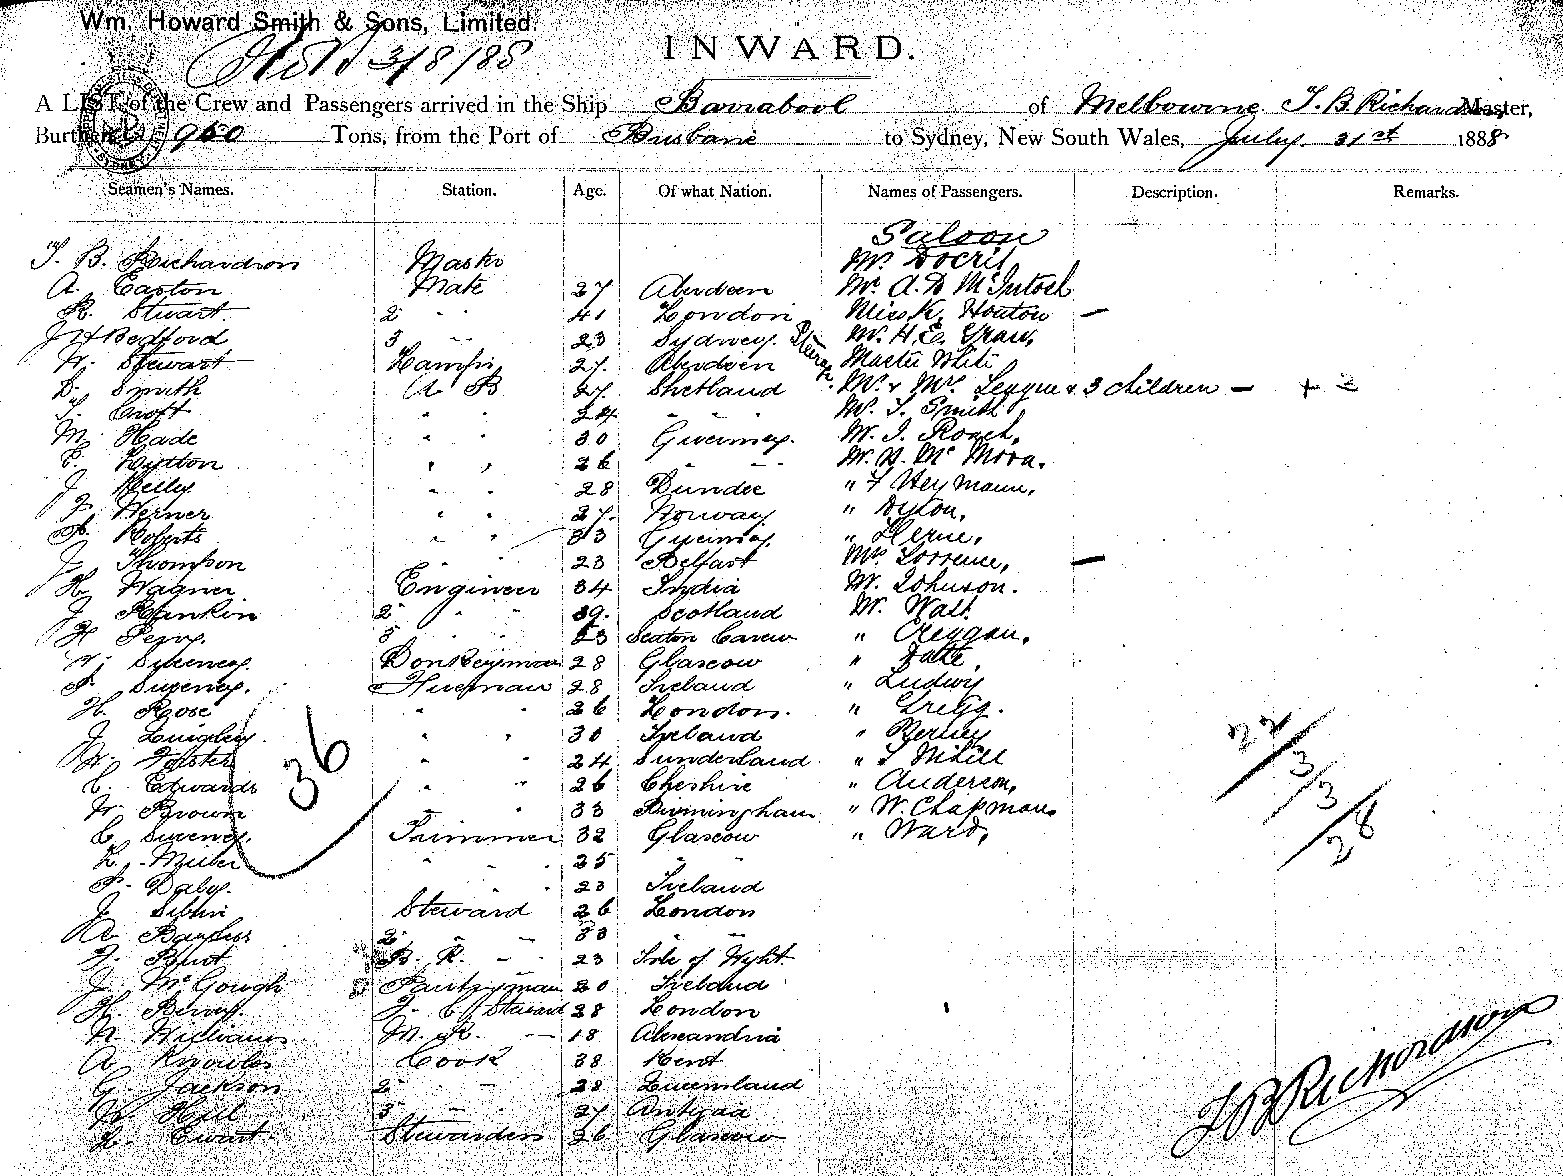 Wm. Howard Smith & Sons, Limited.
3/8/88
INWARD.
A LIST of the Crew and Passengers arrived in the Ship Barrabool of Melbourne T. B. Richardson Master,
Burthen 950 Tons, from the Port of Brisbane to Sydney, New South Wales, July 31st 1888
Seamen's Names. Station. Age. Of what Nation. Names of Passengers. Description. Remarks.
Saloon
T. B. Richardson Master Mr.
A. Easton Mate 27 Aberdeen Mr. A. D. McIntosh
R. Stewart 2 " " 41 London Miss K. Houton —
J H Bedford 3 " " 23 Sydney. Mr. H. E. Graw,
Steerage
W. Stewart Lamps 27. Aberdeen Master White
D. Smith A B 27. Shetland Mr. & Mrs. League & 3 children — + 2
T. Croft " " 24 " " Mr. T. Smith
M. Hade " " 30 Guernsey. Mr. J. Roach,
E. Lytton " " 26 " " Mr. D. Mc Mora.
J. Reilly " " 28 Dundee " F Heymann,
F. Werner " " 27. Norway. " Dyson,
P. Roberts " " 33 Guernsey. " Herne,
J. Thompson " " 23 Belfast Mrs. Lorrence, —
H. Wagner Engineer 34 India Mr. Johnson.
J. Rankin 2 " " 39. Scotland Mr. Wall.
H. Perry. 3 " " 23 Seaton Carew " Creggan,
W. Sweeney. Donkeyman 28 Glascow " Datte,
P. Sweeney. Fireman 28 Ireland " Ludwig
H. Rose " " 26 London. " Gregg.
J. Quigley. " " 30 Ireland " Berney
W. Foster " " 24 Sunderland " T Nihill
C. Edwards " " 26 Cheshire " Anderson,
W. Brown " " 33 Birmingham " W. Chapman
C. Sweeney. Trimmer 32 Glascow " Ward,
L. " " 25 " "
P. Daly. " 23 Ireland
J. Steward 26 London
A. 2 " " 33 " "
F. Bunt B. R. " 23 Isle of Wyht
J. McGough Pantryman 20 Ireland
H. F. C. Steward 28 London
N. Williams M. R. — 18 Alexandria
A. Knowles Cook 38 Kent
G. Jackson 2 " 28 Queensland
3 " " 27 Antigua
L. Ewart. Stewardess 26 Glascow
36
22/3/3/28
T B Richardson